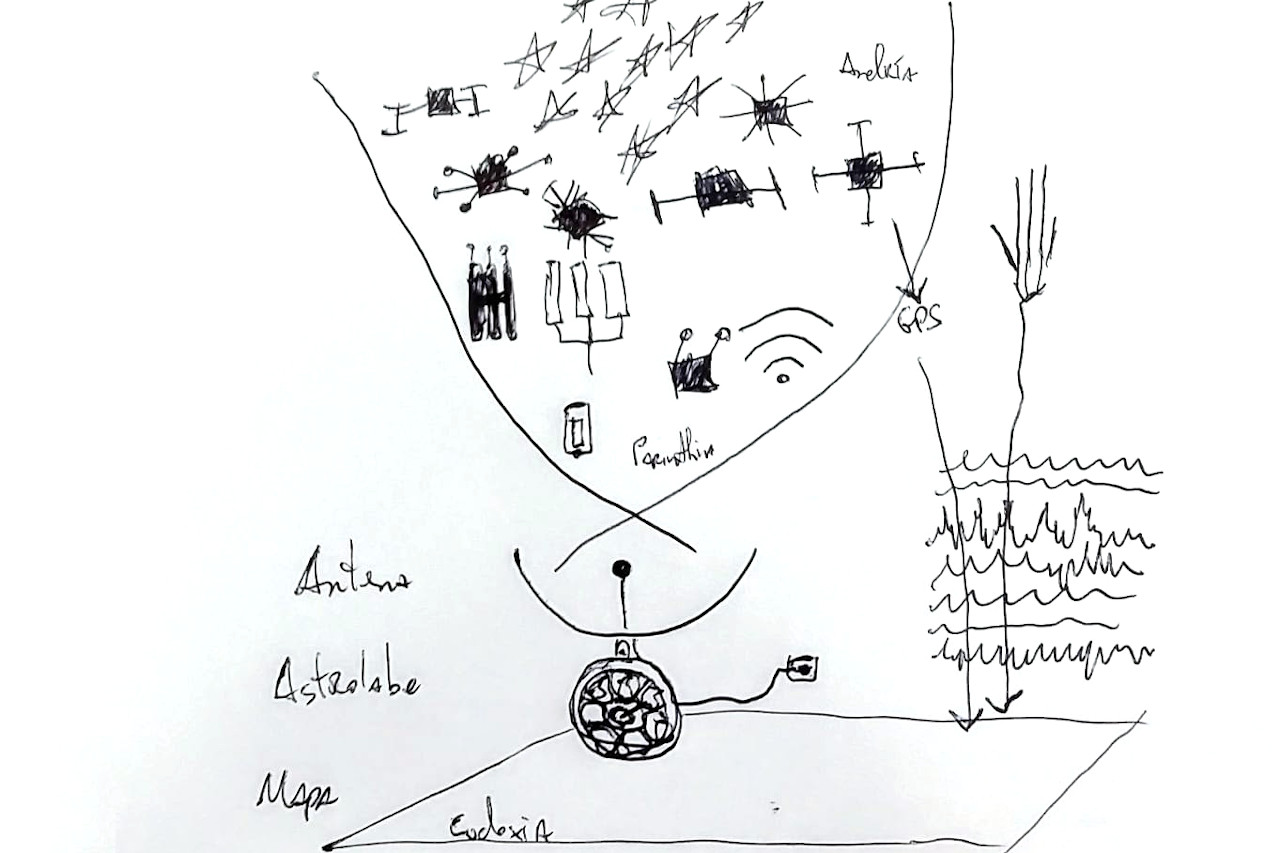 Andria
GPS
Perinthia
Antena
Astrolabe
Mapa
Eudoxia